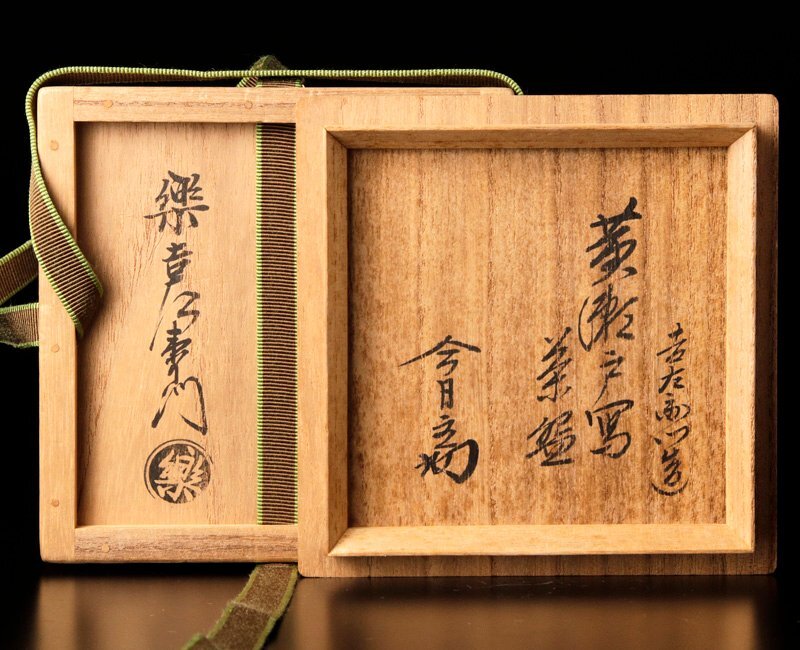 吉左衛門造
黄瀬戸寫
茶盌
今日
樂吉左衛門
樂